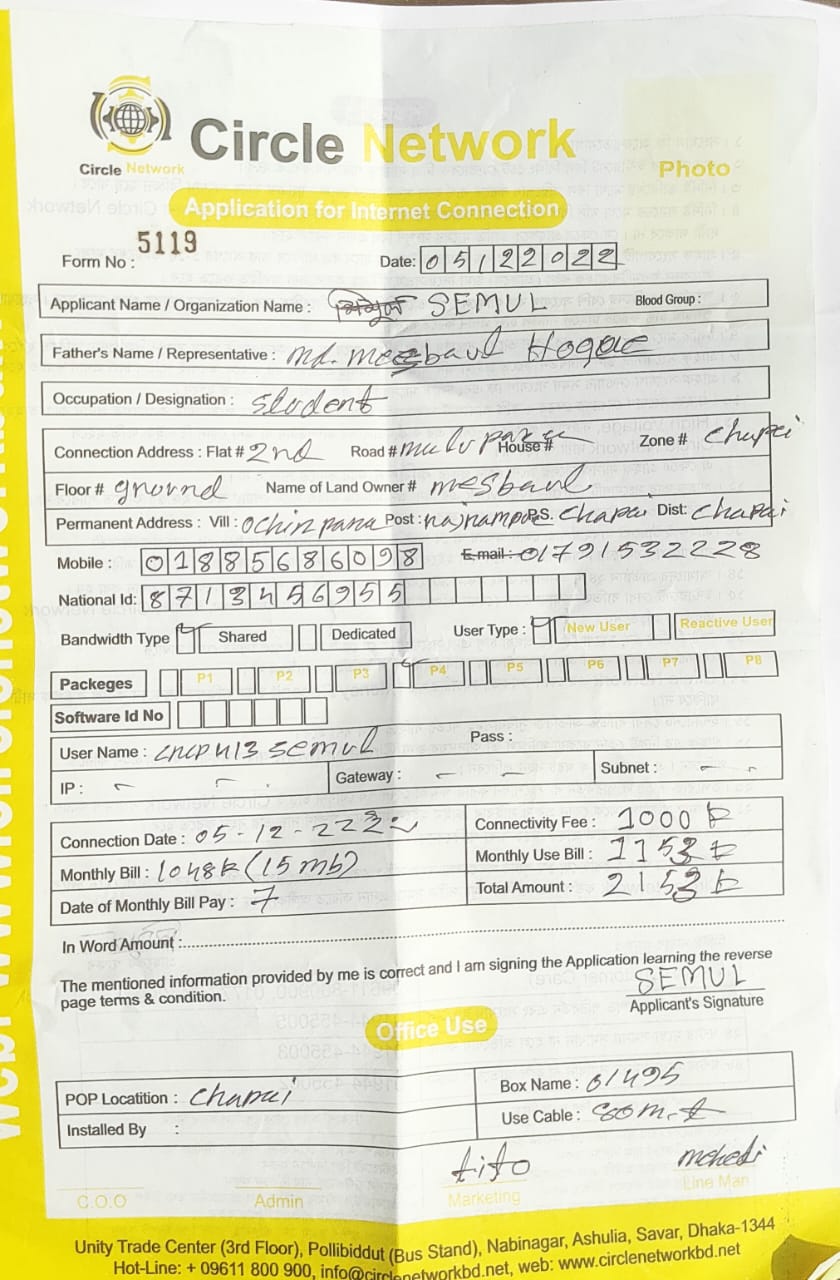 Circle Network
Circle Network
Photo
Application for Internet Connection
Form No : 5119
Date: 05122022
Applicant Name / Organization Name : SEMUL Blood Group :
Father's Name / Representative : Md. Mesbaul Hoque
Occupation / Designation : Stodent
Connection Address : Flat # 2nd Road # mulv para House # Zone # Chapai
Floor # ground Name of Land Owner # mesbaul
Permanent Address : Vill : Post : P.S. Chapai Dist: Chapai
Mobile : 01885686098 E-mail : 01791532228
National Id: 8713456955
Bandwidth Type Shared Dedicated User Type : New User Reactive User
Packeges P1 P2 P3 P4 P5 P6 P7 P8
Software Id No
User Name : Pass :
IP : - - Gateway : - - Subnet : - -
Connection Date : 05-12-22 Connectivity Fee : 1000 ৳
Monthly Bill : 1048৳ (15 mb) Monthly Use Bill : 1153 ৳
Date of Monthly Bill Pay : 7 Total Amount : 2153 ৳
In Word Amount :
The mentioned information provided by me is correct and I am signing the Application learning the reverse
page terms & condition.
SEMUL
Applicant's Signature
Office Use
POP Locatition : Chapai Box Name : 01495
Installed By : Use Cable :
tito mehedi
C.O.O Admin Marketing Line Man
Unity Trade Center (3rd Floor), Pollibiddut (Bus Stand), Nabinagar, Ashulia, Savar, Dhaka-1344
Hot-Line: + 09611 800 900, info@circlenetworkbd.net, web: www.circlenetworkbd.net